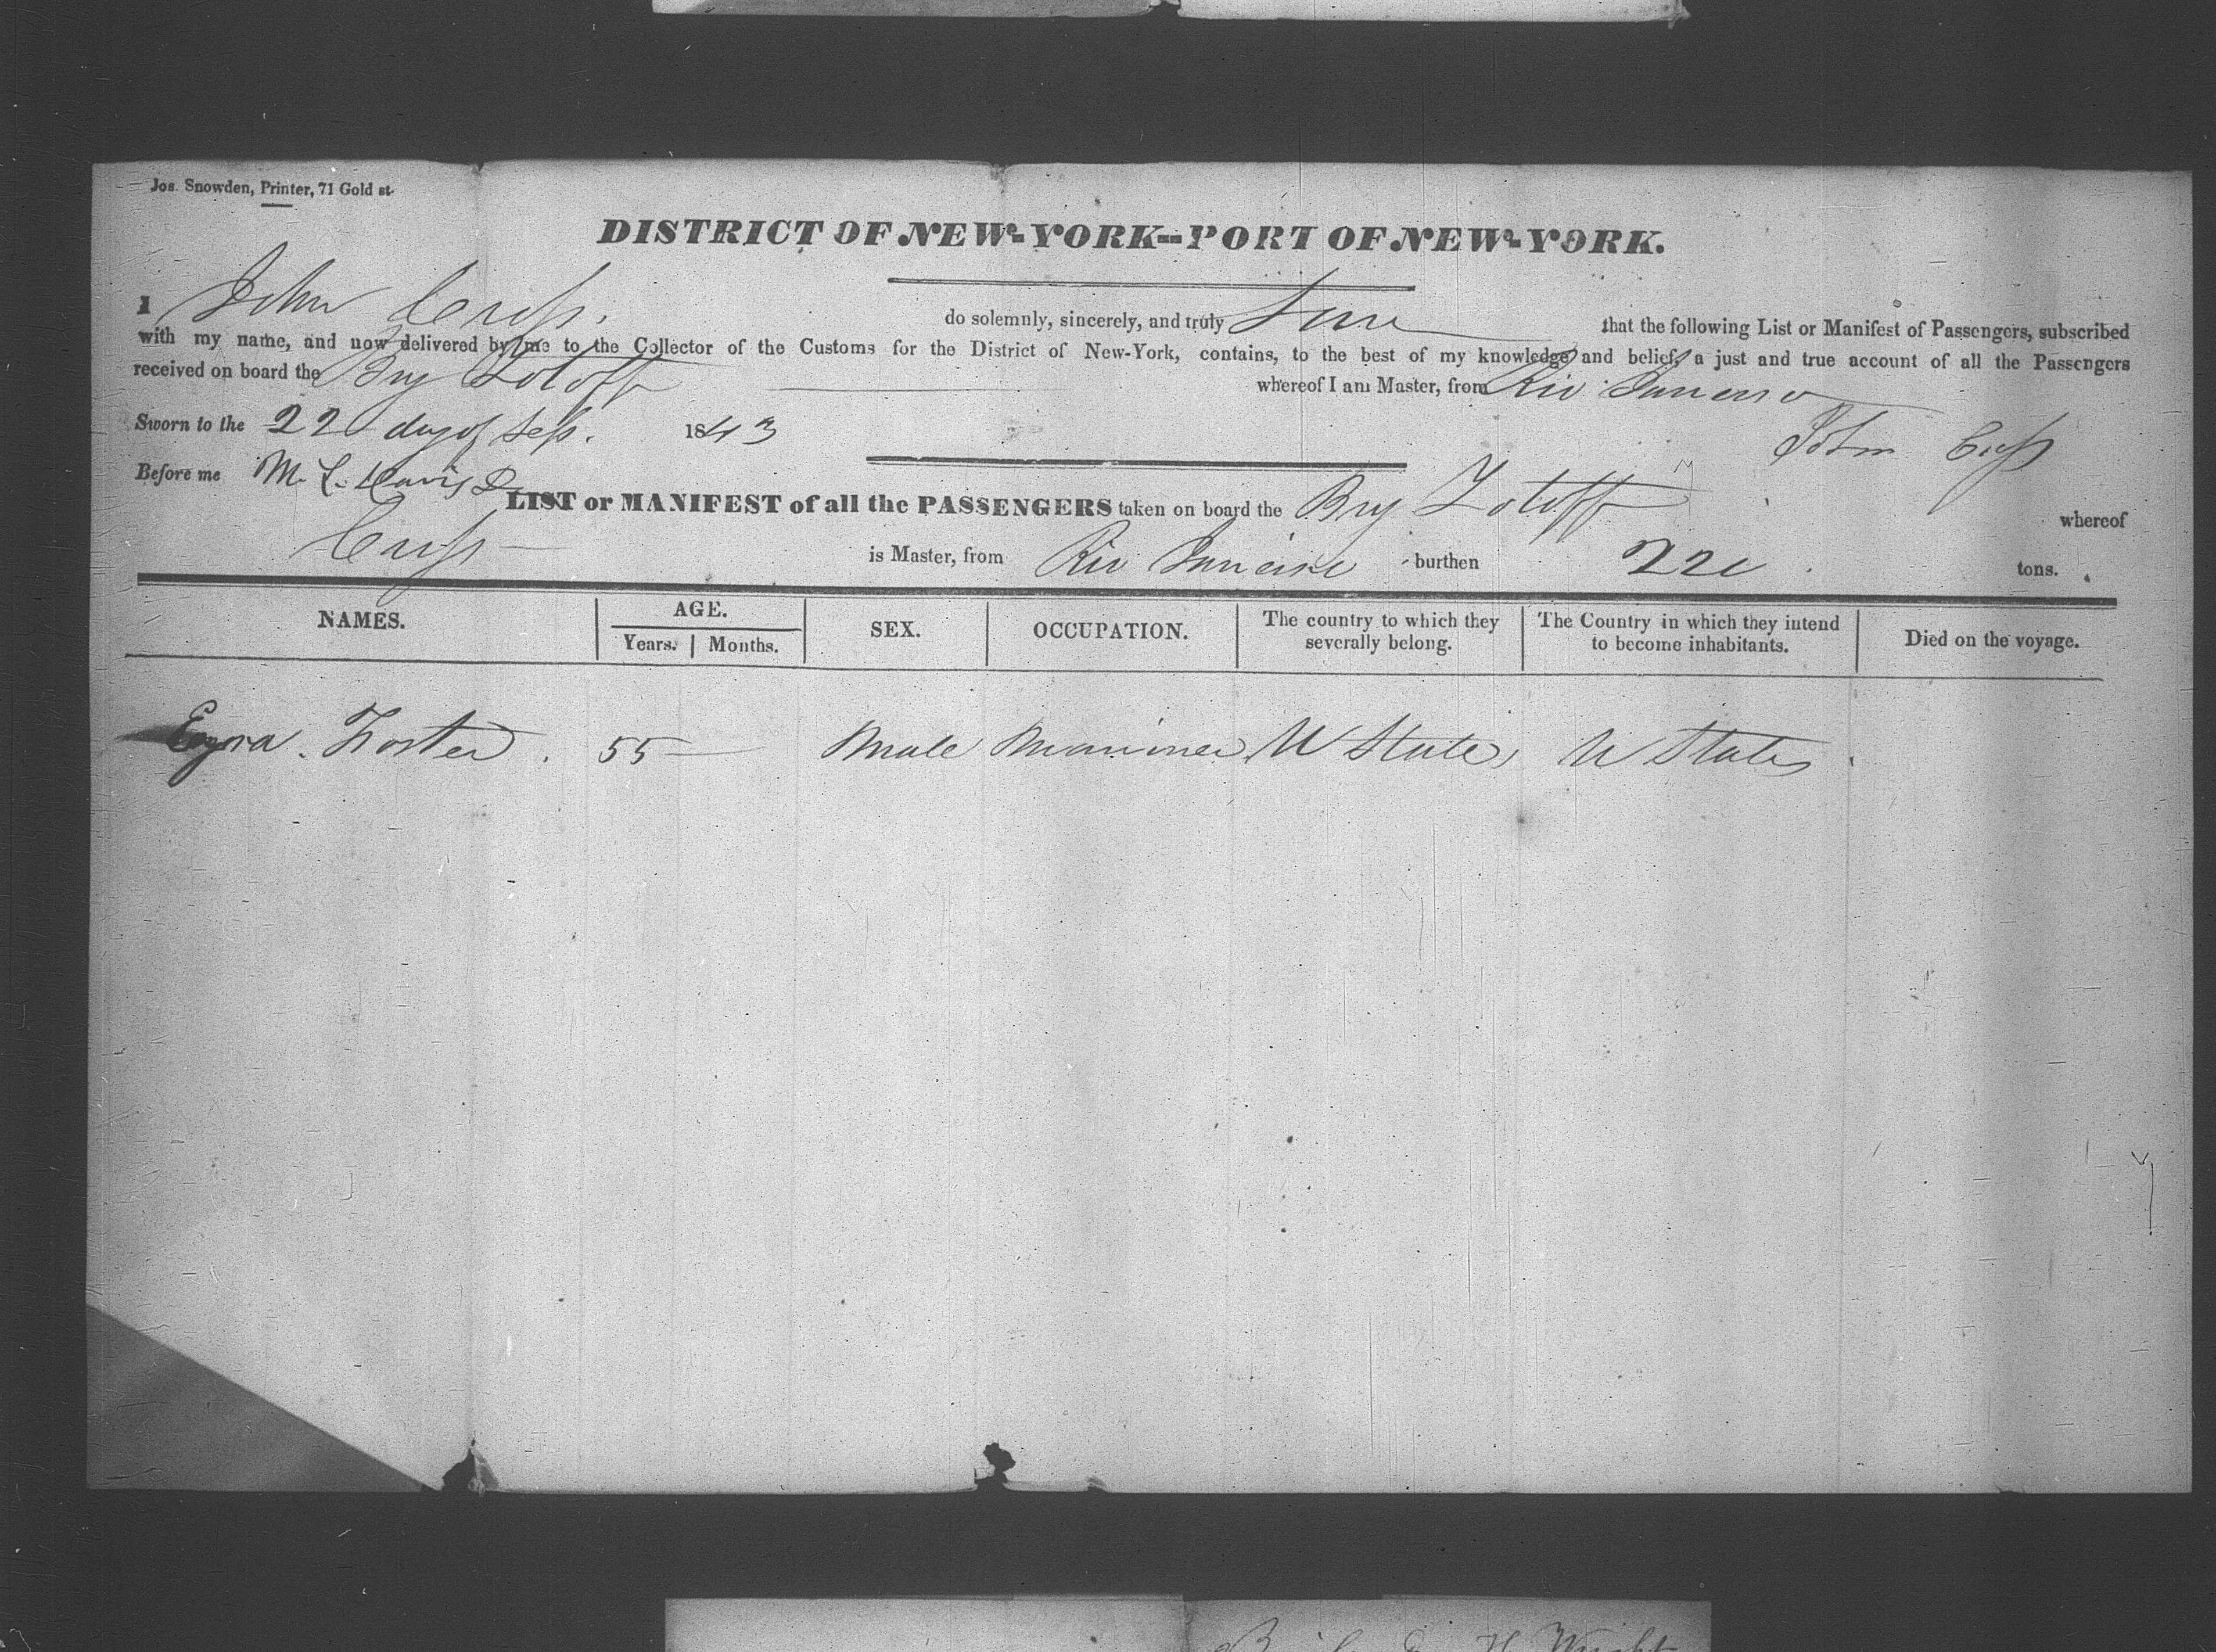 Jos. Snowden, Printer, 71 Gold st
DISTRICT OF NEW-YORK--PORT OF NEW-YORK.
I John do solemnly, sincerely, and truly that the following List or Manifest of Passengers, subscribed
with my name, and now delivered by me to the Collector of the Customs for the District of New-York, contains, to the best of my knowledge and belief, a just and true account of all the Passengers
received on board the Brig whereof I am Master, from Rio Janeiro
Sworn to the 22 day of Sep. 1843 John
Before me M. L. Davis
LIST or MANIFEST of all the PASSENGERS taken on board the Brig whereof
is Master, from Rio Janeiro burthen tons.
NAMES. AGE. Years. Months. SEX. OCCUPATION. The country to which they severally belong. The Country in which they intend to become inhabitants. Died on the voyage.
Ezra Foster. 55 Male Mariner U States U States